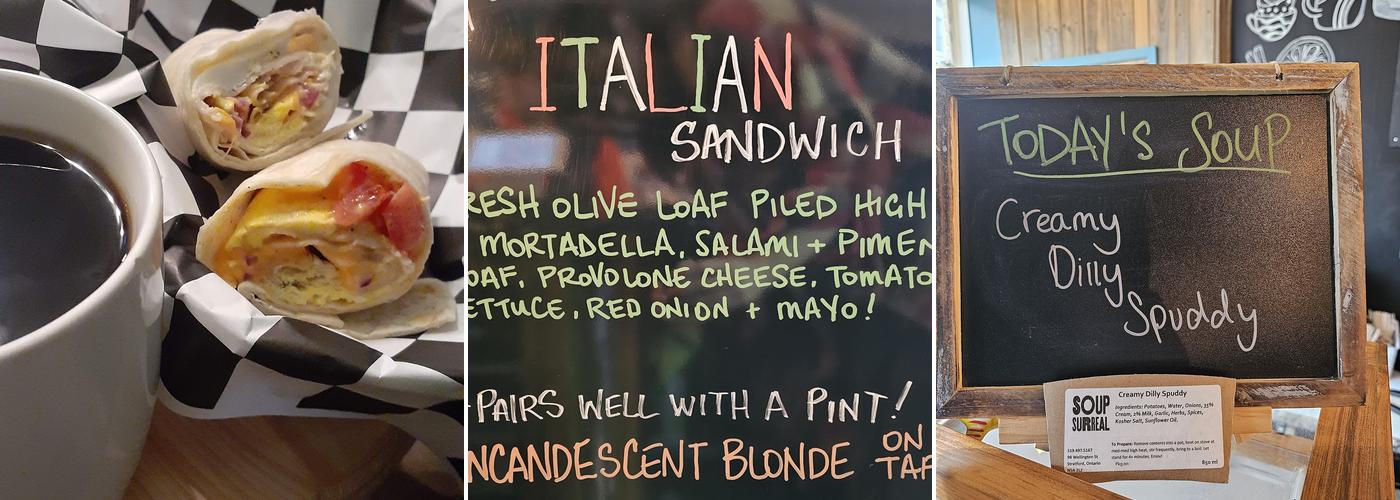 ITALIAN
SANDWICH
RESH OLIVE LOAF PILED HIGH
MORTADELLA, SALAMI + PIMEN
OAF, PROVOLONE CHEESE, TOMATO
ETTUCE, RED ONION + MAYO!
PAIRS WELL WITH A PINT!
NCANDESCENT BLONDE ON TAP
TODAY'S SOUP
Creamy
Dilly
Spuddy
SOUP
SURREAL
Creamy Dilly Spuddy
Ingredients: Potatoes, Water, Onions, 35%
Cream, 2% Milk, Garlic, Herbs, Spices,
Kosher Salt, Sunflower Oil.
To Prepare: Remove contents into a pot, heat on stove at
med-med high heat, stir frequently, bring to a boil. Let
stand for 4+ minutes. Enjoy!
Pkg on:
850 ml
519.497.5167
98 Wellington St
Stratford, Ontario
N5A 2L2